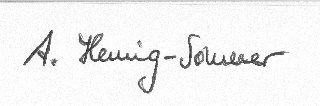 A. Hennig-Sommer